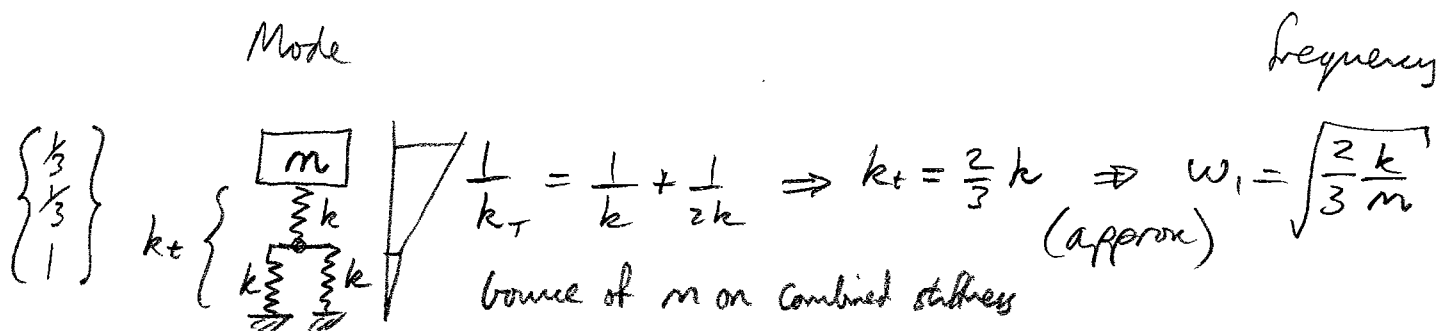 Mode
frequency
{1/3 1/3 1} k_t { m k k k 1/k_T = 1/k + 1/2k ⇒ k_t = 2/3 k ⇒ (approx) ω_1 = √(2/3 k/m)
bounce of m on combined stiffness